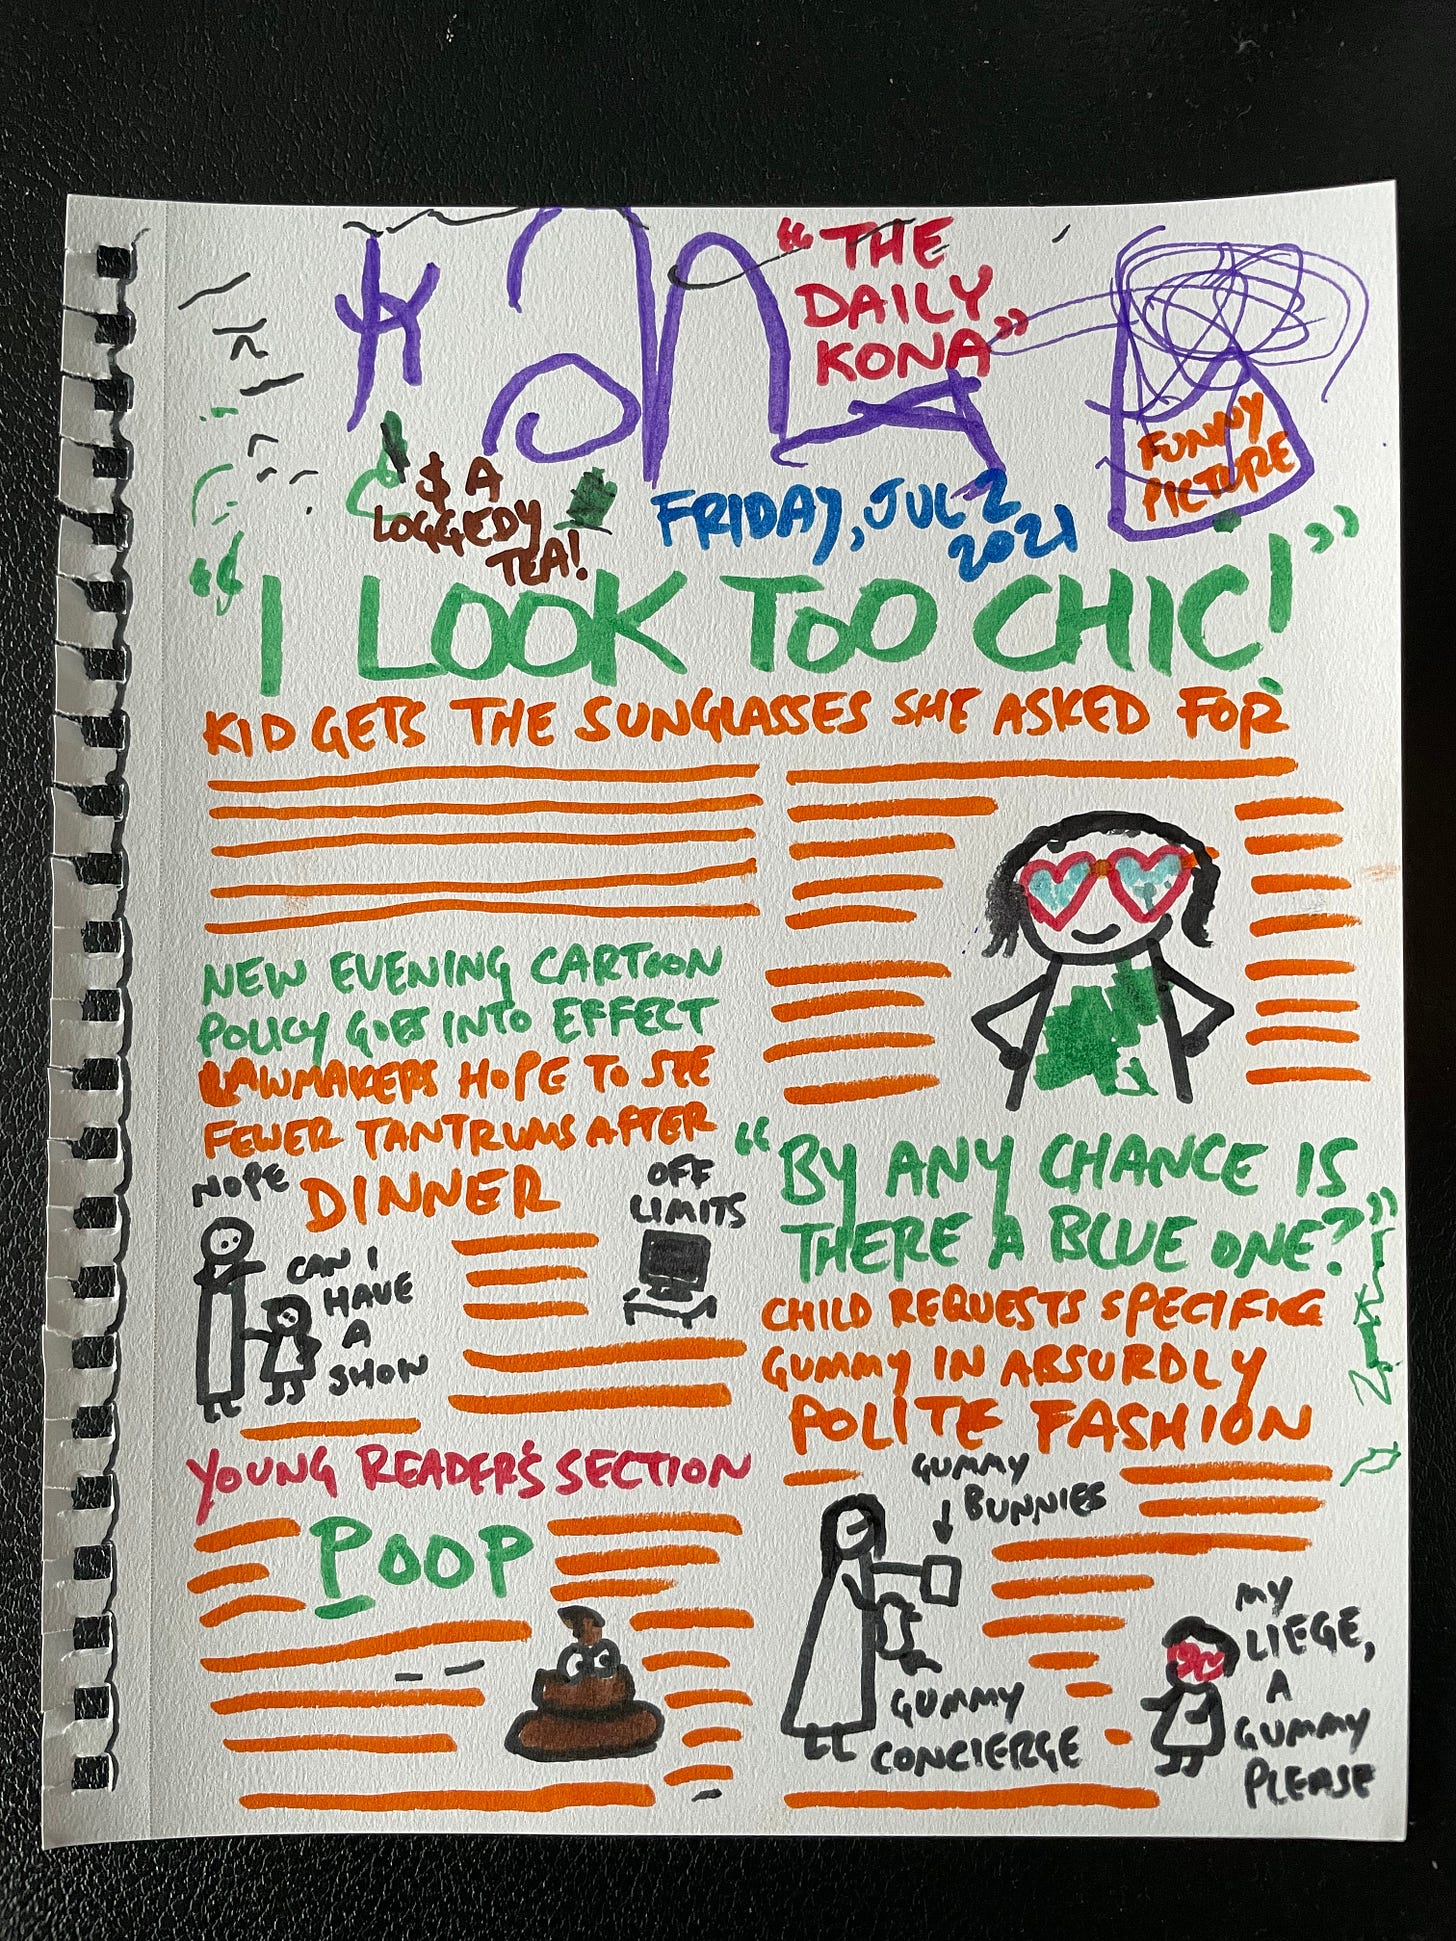 "THE
DAILY
KONA"
FUNNY
PICTURE
$ A
LOGGEDY
TEA!
FRIDAY, JUL 2
2021
"I LOOK TOO CHIC!"
KID GETS THE SUNGLASSES SHE ASKED FOR
NEW EVENING CARTOON
POLICY GOES INTO EFFECT
LAWMAKERS HOPE TO SEE
FEWER TANTRUMS AFTER
DINNER
NOPE
CAN I
HAVE
A
SHOW
OFF
LIMITS
"BY ANY CHANCE IS
THERE A BLUE ONE?"
CHILD REQUESTS SPECIFIC
GUMMY IN ABSURDLY
POLITE FASHION
GUMMY
BUNNIES
GUMMY
CONCIERGE
MY
LIEGE,
A
GUMMY
PLEASE
YOUNG READER'S SECTION
POOP